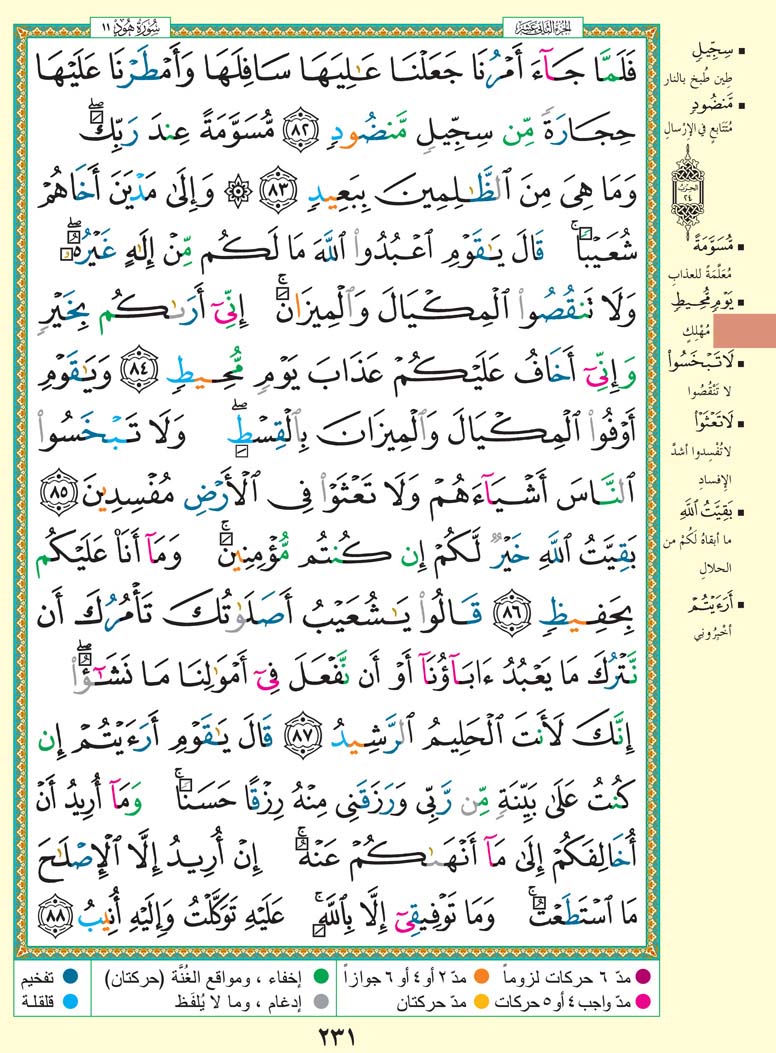 سُورَةُ هُودٍ ١١
الجزء الثاني عشر
فَلَمَّا جَآءَ أَمْرُنَا جَعَلْنَا عَٰلِيَهَا سَافِلَهَا وَأَمْطَرْنَا عَلَيْهَا
حِجَارَةً مِّن سِجِّيلٍ مَّنضُودٍ ٨٢ مُّسَوَّمَةً عِندَ رَبِّكَۖ
وَمَا هِىَ مِنَ ٱلظَّٰلِمِينَ بِبَعِيدٍ ٨٣ ۞ وَإِلَىٰ مَدْيَنَ أَخَاهُمْ
شُعَيْبًاۚ قَالَ يَٰقَوْمِ ٱعْبُدُوا۟ ٱللَّهَ مَا لَكُم مِّنْ إِلَٰهٍ غَيْرُهُۥۖ
وَلَا تَنقُصُوا۟ ٱلْمِكْيَالَ وَٱلْمِيزَانَۚ إِنِّىٓ أَرَىٰكُم بِخَيْرٍ
وَإِنِّىٓ أَخَافُ عَلَيْكُمْ عَذَابَ يَوْمٍ مُّحِيطٍ ٨٤ وَيَٰقَوْمِ
أَوْفُوا۟ ٱلْمِكْيَالَ وَٱلْمِيزَانَ بِٱلْقِسْطِۖ وَلَا تَبْخَسُوا۟
ٱلنَّاسَ أَشْيَآءَهُمْ وَلَا تَعْثَوْا۟ فِى ٱلْأَرْضِ مُفْسِدِينَ ٨٥
بَقِيَّتُ ٱللَّهِ خَيْرٌ لَّكُمْ إِن كُنتُم مُّؤْمِنِينَۚ وَمَآ أَنَا۠ عَلَيْكُم
بِحَفِيظٍ ٨٦ قَالُوا۟ يَٰشُعَيْبُ أَصَلَوٰتُكَ تَأْمُرُكَ أَن
نَّتْرُكَ مَا يَعْبُدُ ءَابَآؤُنَآ أَوْ أَن نَّفْعَلَ فِىٓ أَمْوَٰلِنَا مَا نَشَٰٓؤُا۟ۖ
إِنَّكَ لَأَنتَ ٱلْحَلِيمُ ٱلرَّشِيدُ ٨٧ قَالَ يَٰقَوْمِ أَرَءَيْتُمْ إِن
كُنتُ عَلَىٰ بَيِّنَةٍ مِّن رَّبِّى وَرَزَقَنِى مِنْهُ رِزْقًا حَسَنًاۚ وَمَآ أُرِيدُ أَنْ
أُخَالِفَكُمْ إِلَىٰ مَآ أَنْهَىٰكُمْ عَنْهُۚ إِنْ أُرِيدُ إِلَّا ٱلْإِصْلَٰحَ
مَا ٱسْتَطَعْتُۚ وَمَا تَوْفِيقِىٓ إِلَّا بِٱللَّهِۚ عَلَيْهِ تَوَكَّلْتُ وَإِلَيْهِ أُنِيبُ ٨٨
▪ سِجِّيلٍ
طِين طُبِخَ بالنار
▪ مَّنضُودٍ
مُتَتَابِعٍ في الإرْسالِ
الحزب
٢٤
▪ مُّسَوَّمَةً
مُعَلَّمَةً للعذابِ
▪ يَوْمٍ مُّحِيطٍ
مُهْلِكٍ
▪ لَا تَبْخَسُوا۟
لا تَنْقُصُوا
▪ لَا تَعْثَوْا۟
لا تُفْسِدوا أشدَّ
الإفسادِ
▪ بَقِيَّتُ ٱللَّهِ
ما أبقاهُ لَكُمْ من
الحلالِ
▪ أَرَءَيْتُمْ
أخْبِرُوني
مدّ ٦ حركات لزوماً
مدّ ٢ أو ٤ أو ٦ جوازاً
إخفاء ، ومواقع الغُنَّة (حركتان)
تفخيم
مدّ واجب ٤ أو ٥ حركات
مدّ حركتان
إدغام ، وما لا يُلفَظ
قلقلة
٢٣١